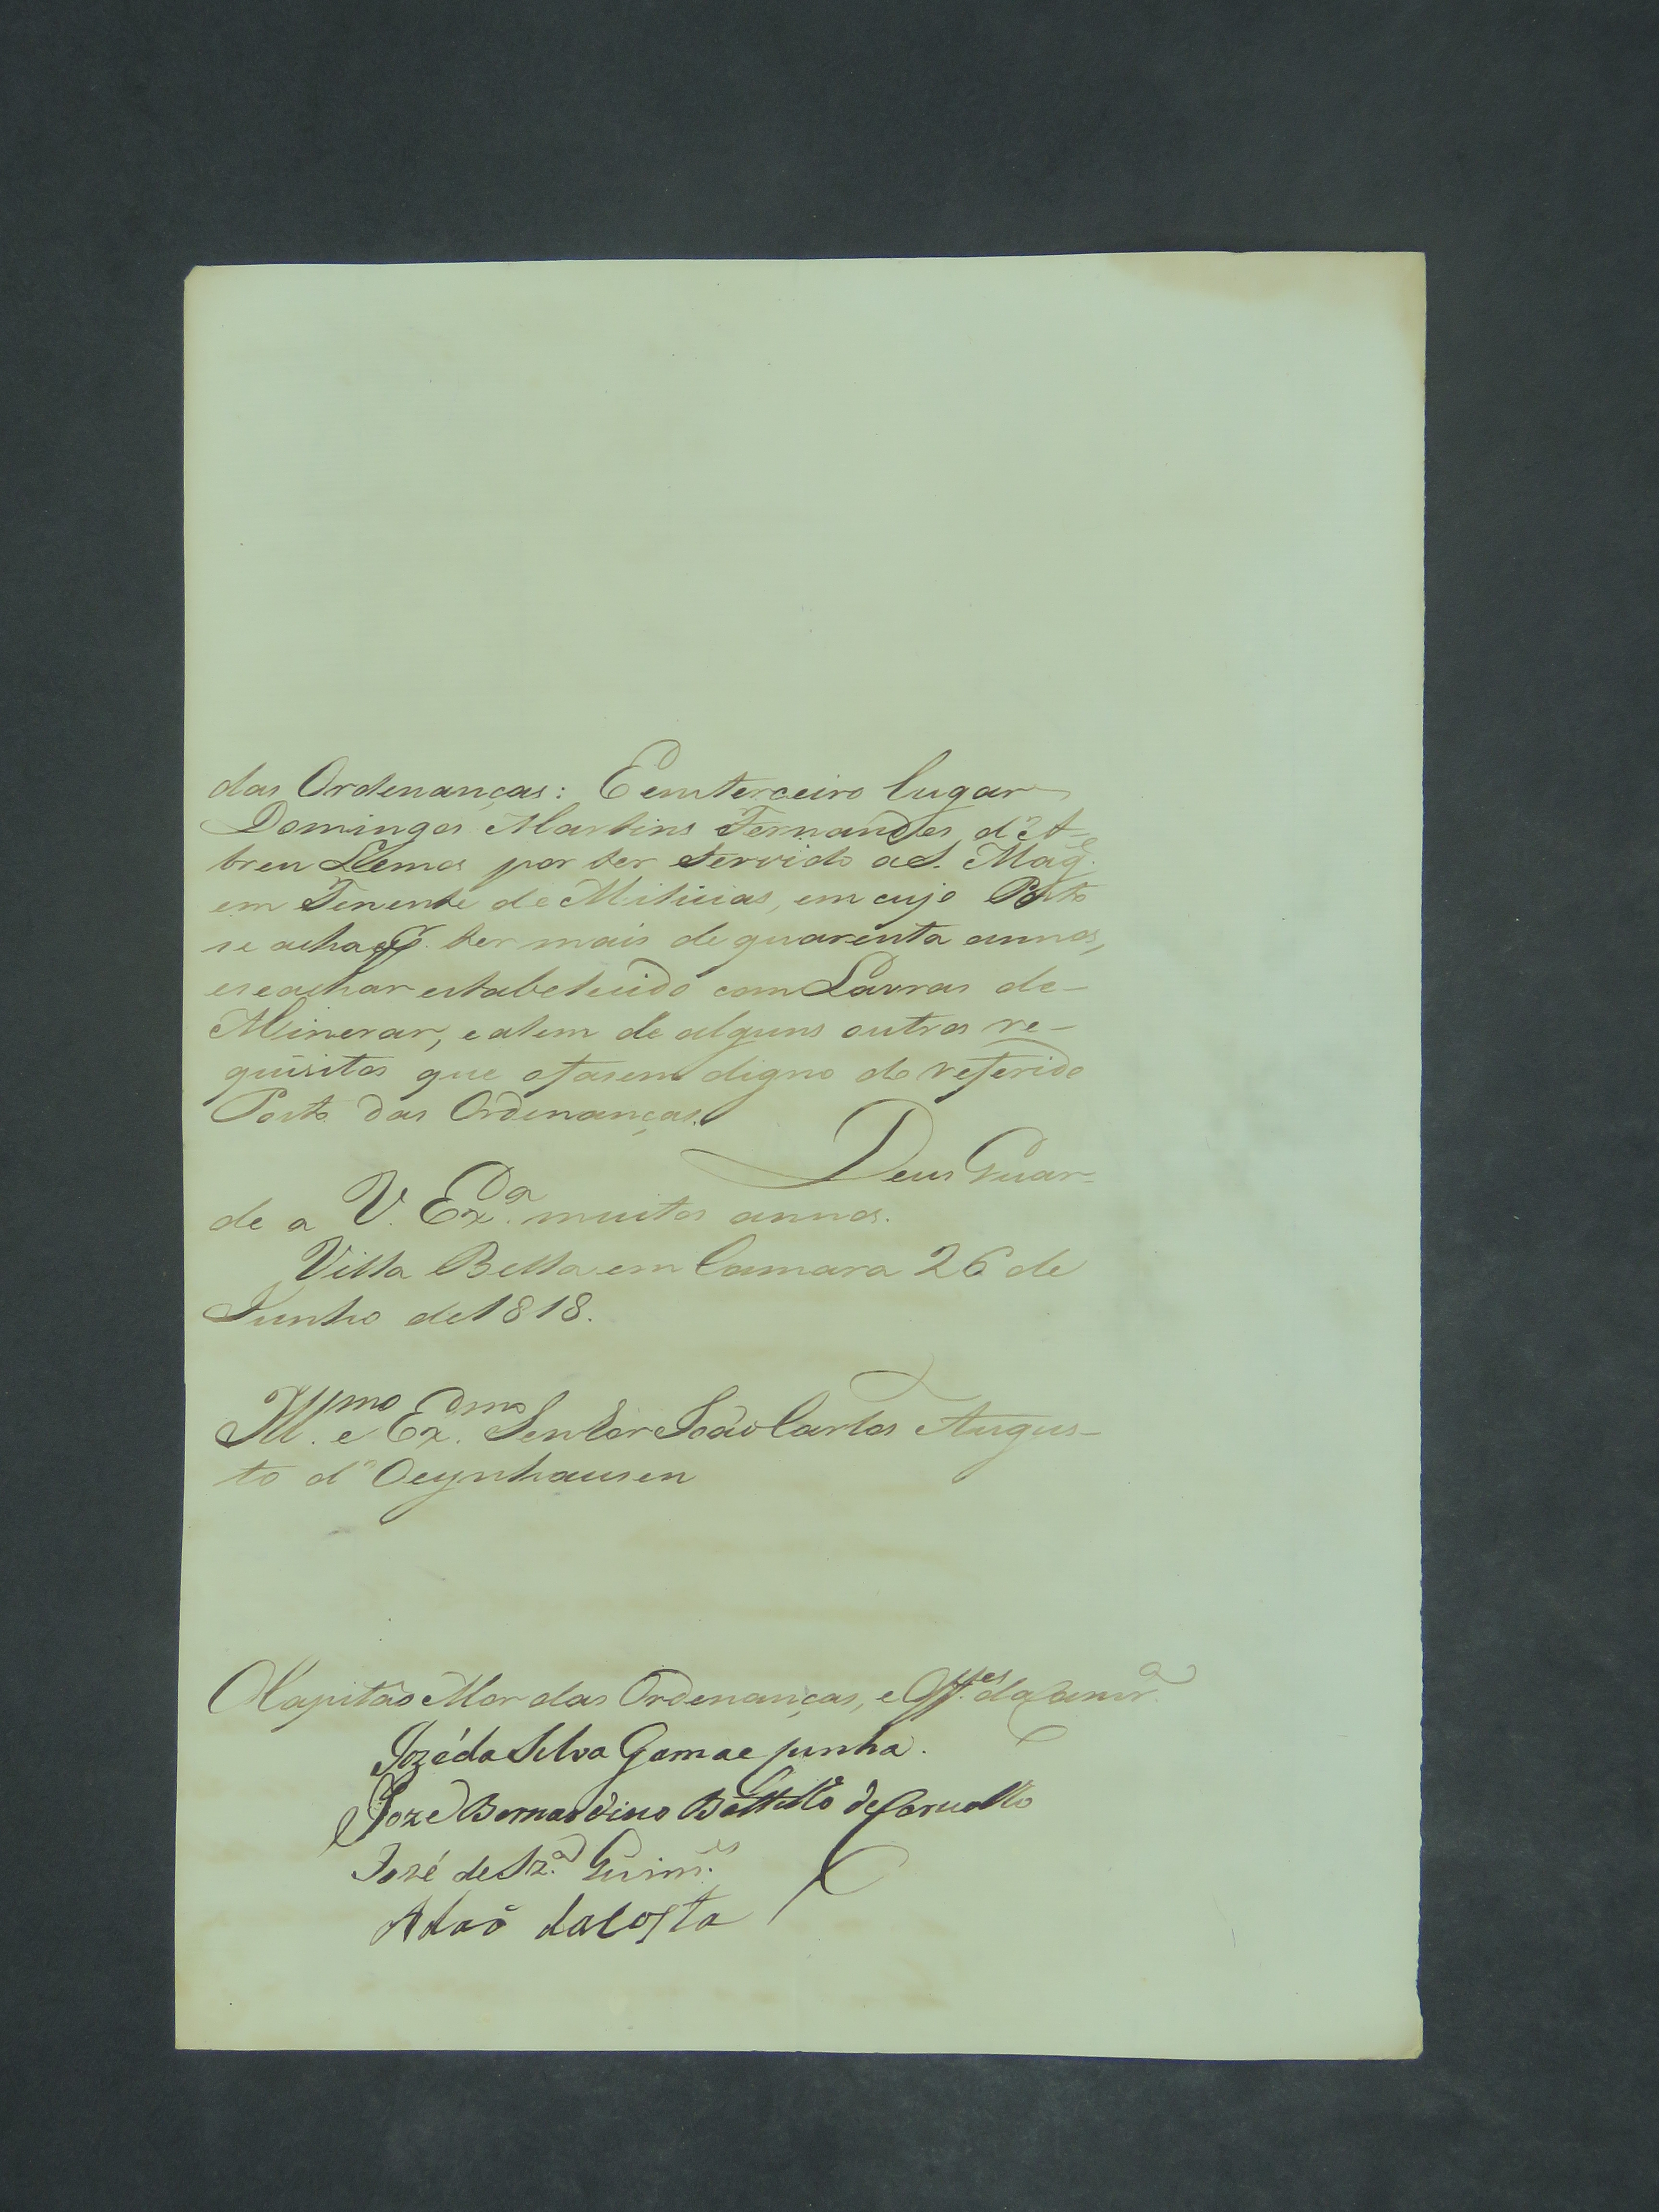 das Ordenanças: E em terceiro lugar
Domingos Martins Fernandes d'A-
breu Lemos por ter servido a S. Mag.e
em Tenente de Milicias, em cujo Posto
se acha ter mais de quarenta annos,
e se achar estabelecido com Lavras de-
Minerar, e alem de alguns outros re-
quisitos que o fasem digno do referido
Posto das Ordenanças.
Deus Guar-
de a V. Ex.a muitos annos.
Villa Bella em Camara 26 de
Junho de 1818.
Ill.mo e Ex.mo Senhor João Carlos Augus-
to d'Oeynhausen
O Capitão Mor das Ordenanças, e Off.es da Camr.a
Jozé da Silva Gama e Cunha.
Joze Bernardino Bottelho de Carvalho
José de Sz.a Guim.es
Adaõ da Costa